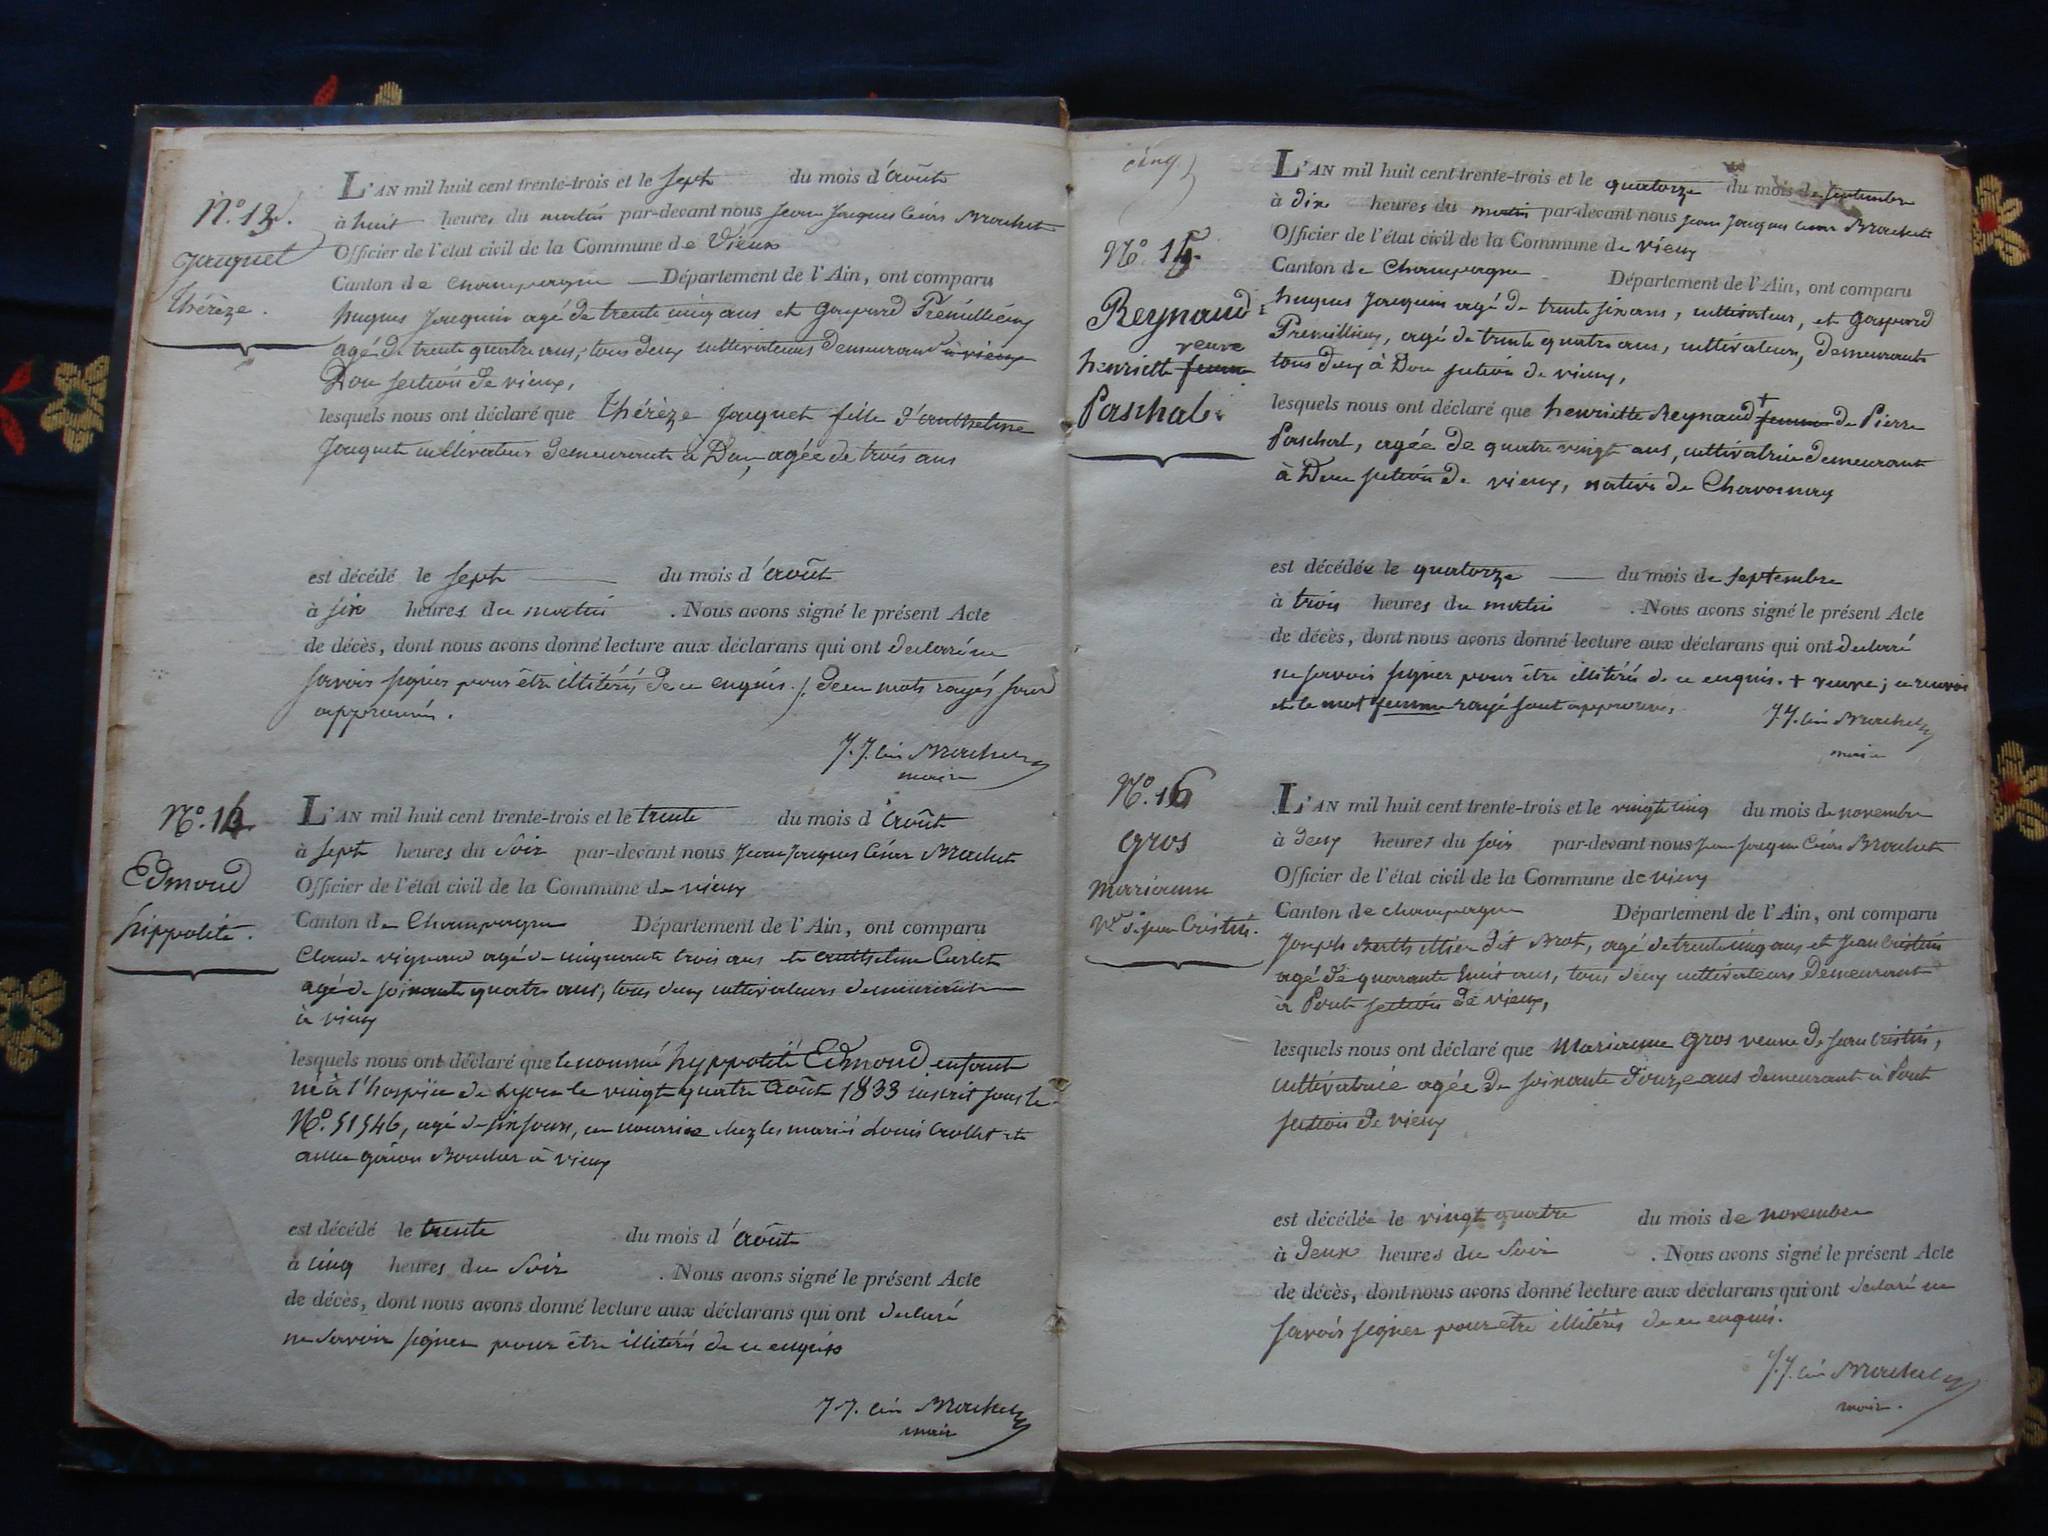 N.º 13.
Jauquet
thérèze.
L'AN mil huit cent trente-trois et le sept du mois d'août
à huit heures du matin par-devant nous Jean Jacques César Brochet
Officier de l'état civil de la Commune de Vieux
Canton de champagne Département de l'Ain, ont comparu
hugues Jauquin agé de trente cinq ans et Gaspard Prémillieux
agé de trente quatre ans, tous deux cultivateurs demeurant à vieux
Don section de vieux,
lesquels nous ont déclaré que thérèze Jauquet fille d'anthelme
Jauquet cultivateur demeurant à Don, agée de trois ans
est décédé le sept du mois d'août
à six heures du matin . Nous avons signé le présent Acte
de décès, dont nous avons donné lecture aux déclarans qui ont declaré ne
savoir signer pour être illitérés de ce enquis. / deux mots rayés sont
approuvés.
J. J. César Brochet
maire
N.º 14
Edmond
hippolite.
L'AN mil huit cent trente-trois et le trente du mois d'août
à sept heures du soir par-devant nous Jean Jacques César Brochet
Officier de l'état civil de la Commune de vieux
Canton de Champagne Département de l'Ain, ont comparu
Claude vignaud agé de cinquante trois ans et anthelme Carlet
agé de soixante quatre ans, tous deux cultivateurs demeurant
à vieux
lesquels nous ont déclaré que le nommé hyppolité Edmond enfant
né à l'hospice de Lyon le vingt quatre août 1833 inscrit sous le
N.º 51546, agé de six jours, en nourrice chez les mariés Louis
anne à vieux
est décédé le trente du mois d'août
à cinq heures du soir . Nous avons signé le présent Acte
de décès, dont nous avons donné lecture aux déclarans qui ont declaré
ne savoir signer pour être illitérés de ce enquis
J. J. César Brochet
maire
cinq
N.º 15.
Reynaud
veuve
henriette femme
Paschal.
L'AN mil huit cent trente-trois et le quatorze du mois de septembre
à dix heures du matin par-devant nous Jean Jacques César Brochet
Officier de l'état civil de la Commune de vieux
Canton de Champagne Département de l'Ain, ont comparu
hugues Jauquin agé de trente six ans, cultivateur, et Gaspard
Premillieux, agé de trente quatre ans, cultivateur, demeurants
tous deux à Don section de vieux,
lesquels nous ont déclaré que henriette Reynaud + femme de Pierre
Paschal, agée de quatre vingt ans, cultivatrice demeurant
à Don section de vieux, native de Chavornay
est décédée le quatorze du mois de septembre
à trois heures du matin . Nous avons signé le présent Acte
de décès, dont nous avons donné lecture aux déclarans qui ont declaré
ne savoir signer pour être illitérés de ce enquis. + veuve; ce renvoi
et le mot femme rayé sont approuvés.
J. J. César Brochet
maire
N.º 16
Gros
Marianne
V.e de jean Cristin.
L'AN mil huit cent trente-trois et le vingt cinq du mois de novembre
à deux heures du soir par-devant nous Jean Jacques César Brochet
Officier de l'état civil de la Commune de vieux
Canton de champagne Département de l'Ain, ont comparu
Joseph Berthellier dit Brot, agé de trente cinq ans et Jean Cristin
agé de quarante huit ans, tous deux cultivateurs demeurant
à Pont section de vieux,
lesquels nous ont déclaré que Marianne Gros veuve de jean Cristin,
cultivatrice agée de soixante douze ans demeurant à Pont
section de vieux
est décédée le vingt quatre du mois de novembre
à deux heures du soir . Nous avons signé le présent Acte
de décès, dont nous avons donné lecture aux déclarans qui ont declaré ne
savoir signer pour être illitérés de ce enquis.
J. J. César Brochet
maire.